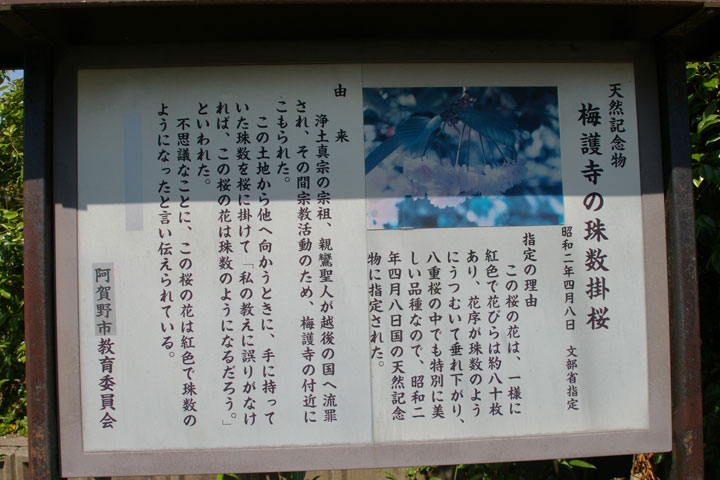 天然記念物
梅護寺の珠数掛桜
昭和二年四月八日 文部省指定
指定の理由
この桜の花は、一様に
紅色で花びらは約八十枚
あり、花序が珠数のよう
にうつむいて垂れ下がり、
八重桜の中でも特別に美
しい品種なので、昭和二
年四月八日国の天然記念
物に指定された。
由来
浄土真宗の宗祖、親鸞聖人が越後の国へ流罪
され、その間宗教活動のため、梅護寺の付近に
こもられた。
この土地から他へ向かうときに、手に持って
いた珠数を桜に掛けて「私の教えに誤りがなけ
れば、この桜の花は珠数のようになるだろう。」
といわれた。
不思議なことに、この桜の花は紅色で珠数の
ようになったと言い伝えられている。
阿賀野市教育委員会